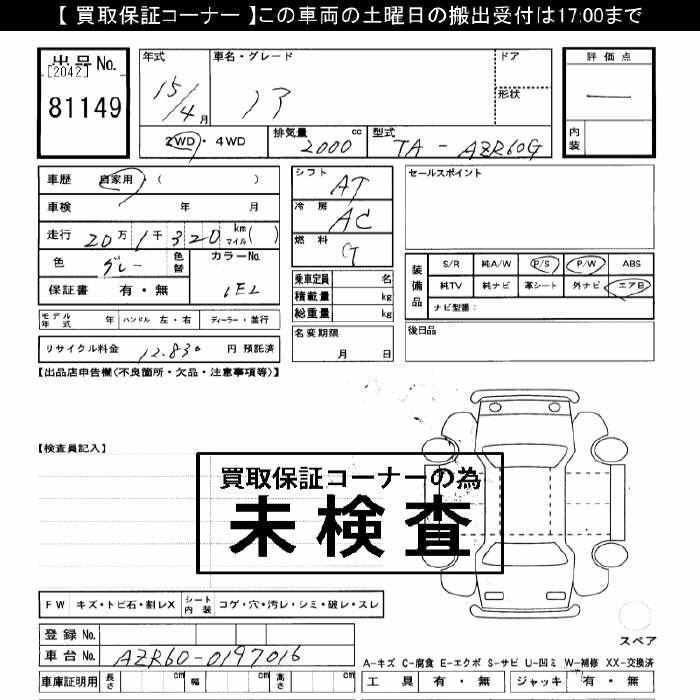 【 買取保証コーナー 】この車両の土曜日の搬出受付は17:00まで
出品No.
[2042]
81149
年式 車名・グレード ドア
15/4月
形状
評価点
—
内装
2WD・4WD 排気量 2000 cc 型式 TA - AZR60G
車歴 自家用・( )
車検 年 月
走行 20万1千320 km マイル( )
色 グレー 色替 カラーNo.
1E2
保証書 有・無
モデル年式 年 ハンドル 左・右 ディーラー・並行
リサイクル料金 12.830 円 預託済
シフト AT
冷房 AC
燃料 G
乗車定員 名
積載量 kg
総重量 kg
名変期限
月 日
セールスポイント
装備品 S/R 純A/W P/S P/W ABS
純TV 純ナビ 革シート 外ナビ エアB
ナビ型番:
後日品
【出品店申告欄(不良箇所・欠品・注意事項等)】
【検査員記入】
買取保証コーナーの為
未検査
FW キズ・トビ石・割レX シート内装 コゲ・穴・汚レ・シミ・破レ・スレ
登録No.
車台No. AZR60-0197016
車庫証明用 長さ cm 幅 cm 高さ cm
スペア
A-キズ C-腐食 E-エクボ S-サビ U-凹ミ W-補修 XX-交換済
工具 有・無 ジャッキ 有・無